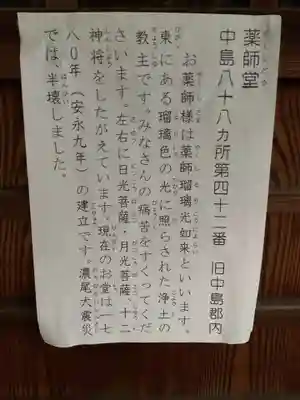 薬師堂
中島八十八カ所第四十二番　旧中島郡内
お薬師様は薬師瑠璃光如来といいます。
東にある瑠璃色の光に照らされた浄土の
教主です。みなさんの病苦をすくってくだ
さいます。左右に日光菩薩、月光菩薩、十二
神将をしたがえています。現在のお堂は一七
八〇年（安永九年）の建立です。濃尾大震災
では、半壊しました。